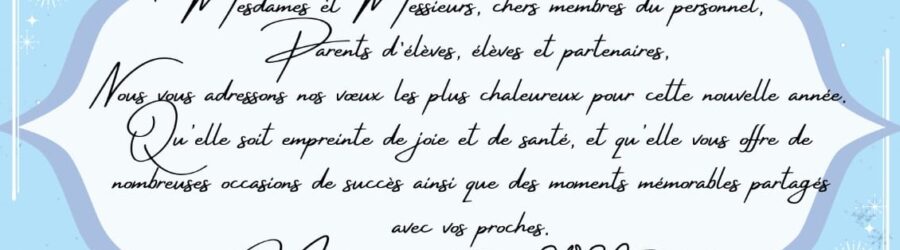 Mesdames et Messieurs, chers membres du personnel,
Parents d'élèves, élèves et partenaires,
Nous vous adressons nos vœux les plus chaleureux pour cette nouvelle année.
Qu'elle soit empreinte de joie et de santé, et qu'elle vous offre de
nombreuses occasions de succès ainsi que des moments mémorables partagés
avec vos proches.